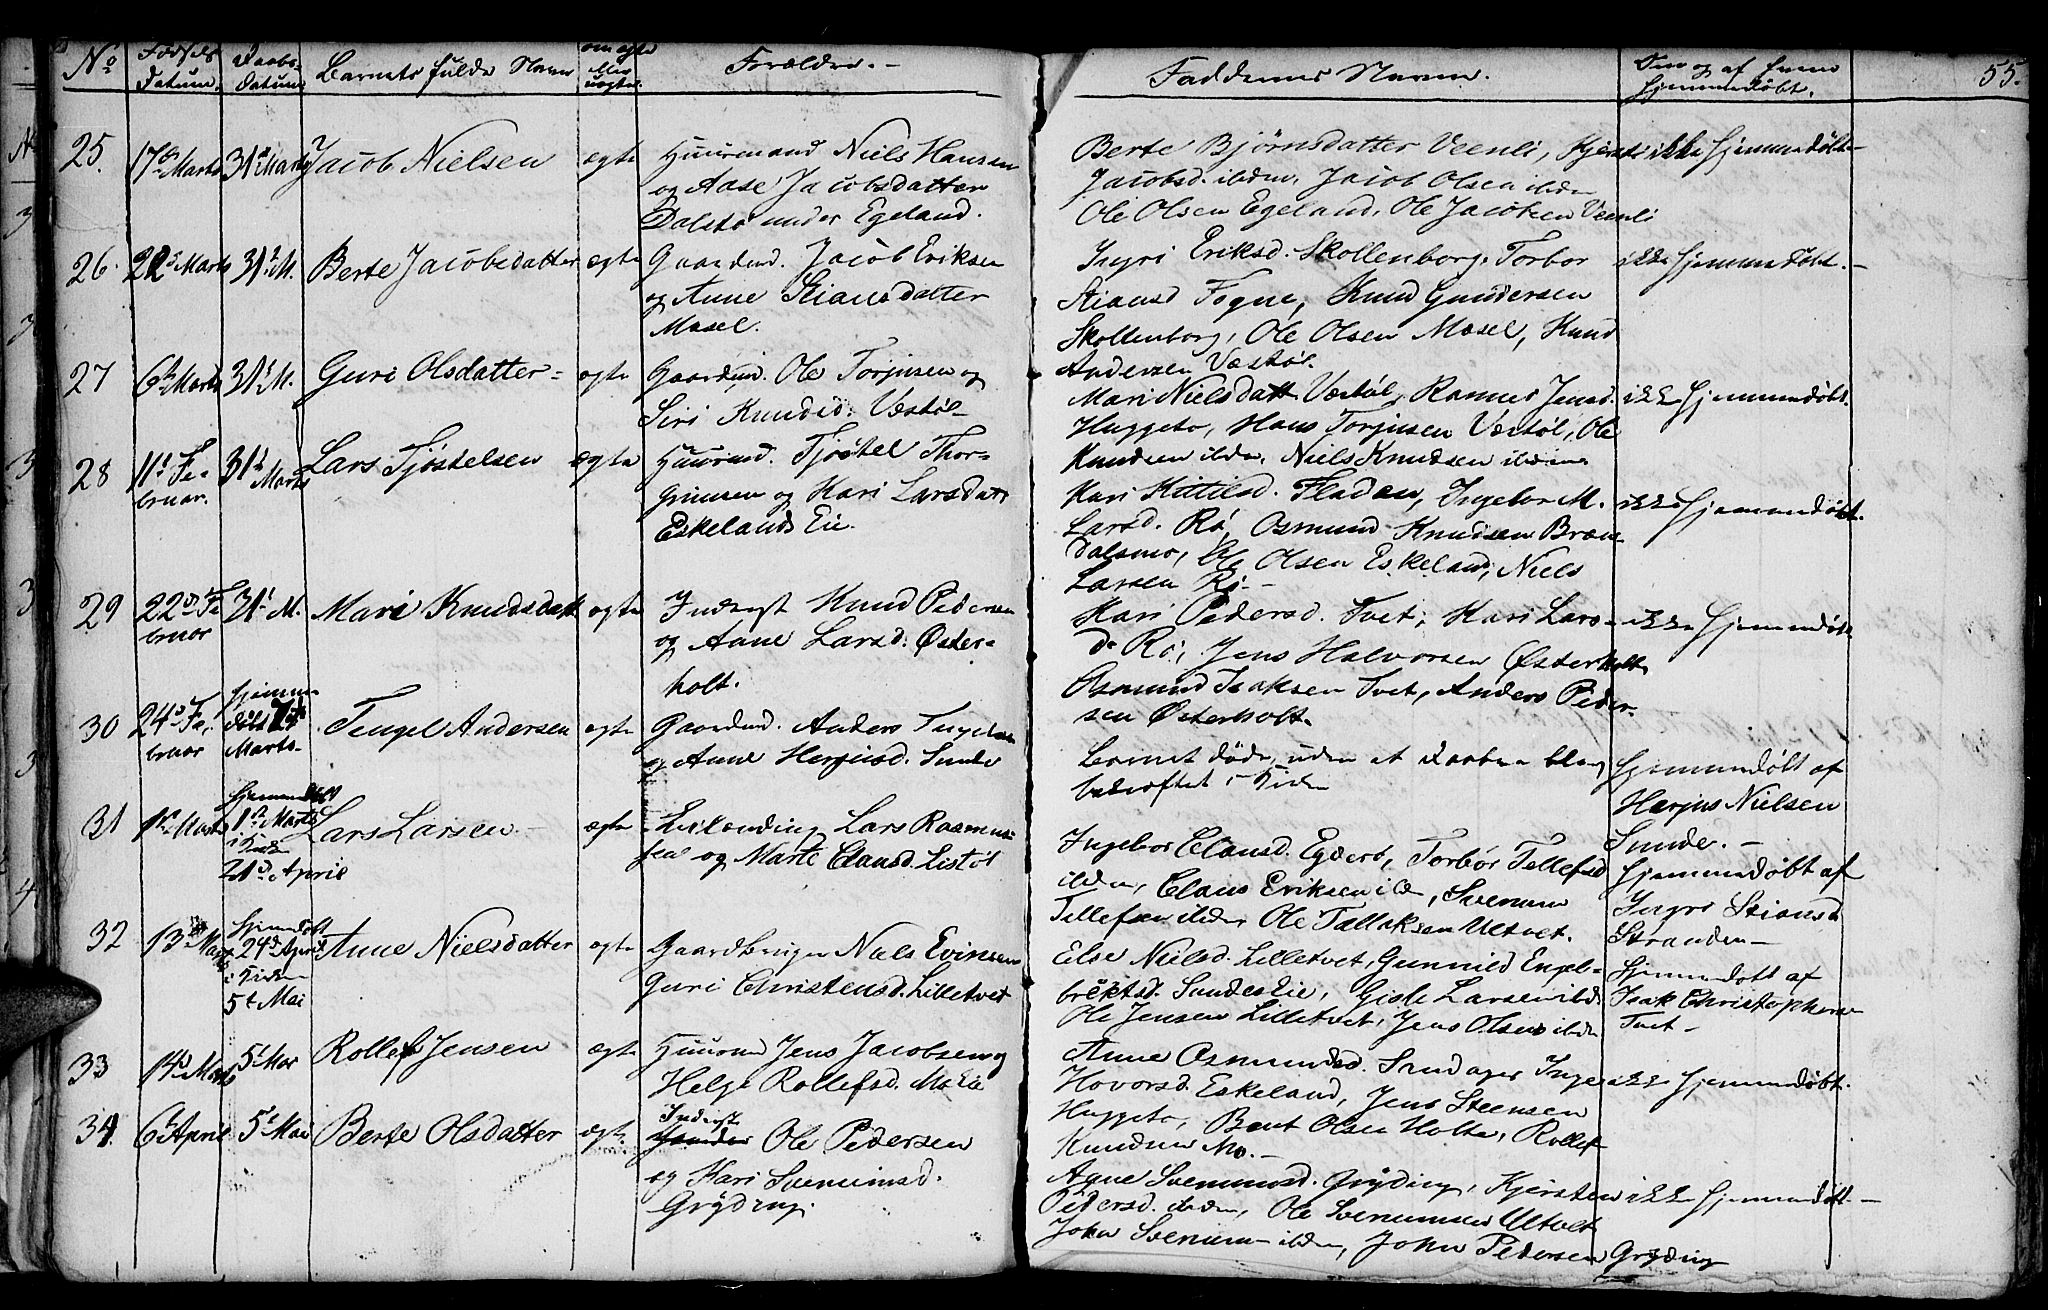 No Fødsels Datum. Daabs-Datum Barnets fulde Navn om ægte eller uægte. Forældre. - Faddernes Navne. Om og af hvem hjemmedøbt. 55.
25. 17de Marts 31te Marts Jacob Nielsen ægte Huusmand Niels Hansen
og Aase Jacobsdatter
Dalstø under Egeland.
Berte Bjørnsdatter Veenli, Kjersti ikke hjemmedøbt
Jacobsd. ibden, Jacob Olsen ibden
Ole Olsen Egeland, Ole Jacobsen Veenli
26. 22d Marts 31t M. Berte Jacobsdatter ægte Gaardmd. Jacob Eriksen
og Anne Stiansdatter
Mosel.
Ingri Eriksd. Skollenborg, Torbor ikke hjemmedøbt. -
Stiansd Fogne, Knud Gundersen
Skollenborg, Ole Olsen Mosel, Knud
Andersen Vestøl.
27 6t Marts 31t M. Guri Olsdatter - ægte Gaardmd. Ole Torjusen og
Siri Knudsd. Vestøl -
Mari Nielsdatt. Vestøl, Rasmus Jensd. ikke hjemmedøbt.
Huggeto, Hans Torjusen Vestøl, Ole
Knudsen ibden, Niels Knudsen ibden
28 11t Februar. 31t Marts Lars Tjøstelsen ægte Huusmd. Tjøstel Thor-
grimsen og Kari Larsdatt
Eskelands Eie.
Kari Kittilsd. Fladen, Ingebor M. ikke hjemmedøbt.
Larsd. Rø, Osmund Knudsen Bræn-
dalsmo, Ole Olsen Eskeland, Niels
Larsen Rø -
29 22d Februar 31t M. Mari Knudsdatt ægte Inderst Knud Pedersen
og Anne Larsd. Øster-
holt.
Kari Pedersd. Tvet, Kari Lars- ikke hjemmedøbt
d. Rø, Jens Halvorsen Østerholt
Osmund Isaksen Tvet, Anders Peder-
sen Østerholt.
30 24d Februar hjemmedøbt Marts. Tengel Andersen ægte Gaardmd. Anders Tengelsen
og Anne Herjusd. Sunde
Barnet døde, uden at Daaben blev
bekræftet i Kirken
Hjemmedøbt af
Herjus Nielsen
Sunde. -
31 1st Marts hjemmedøbt 1st Marts i Kirk 21d April Lars Larsen - ægte Lars Rasmus-
sen og Marte Clausd. Listøl
Ingebor Clausd. Egderø, Torbør Tellefsd
ibden, Claus Eriksen ibd, Svenum
Tellefsen ibden Ole Tallaksen Ultvet.
hjemmedøbt af
Ingri Stiansd
Stranden -
32 13d Marts hjemdøbt 24d April i Kirken 5t Mai Anne Nielsdatter ægte Gaardbruger Niels Evinsen
Guri Christensd. Lilletvet
Else Nielsd. Lilletvet, Gunnild Engel-
brektsd. Sundes Eie, Gisle Larsen ibd
Ole Jensen Lilletvet, Jens Olsen ibden
hjemmedøbt af
Isak Christophersen
Tvet -
33 14d Marts 5t Mai Rollef Jensen ægte Huusmd Jens Jacobsen og
Helge Rollefsd. Mo Eie
Anne Osmundsd. Sandager Inge ikke hjemmedøbt.
Hovorsd. Eskeland, Jens Steensen
Huggeto, Bent Olsen Holte, Rollef
Knudsen Mo. -
34. 6t April 5t Mai Berte Olsdatter ægte Inderst
Ole Pedersen
og Kari Svenumsd.
Grøding.
Agne Svenumsd. Grøding, Kjersten ikke hjemmedøbt -
Pedersd. ibden, Ole Svenumsen Ultvet
John Svenum- ibden, John Pedersen Grøding